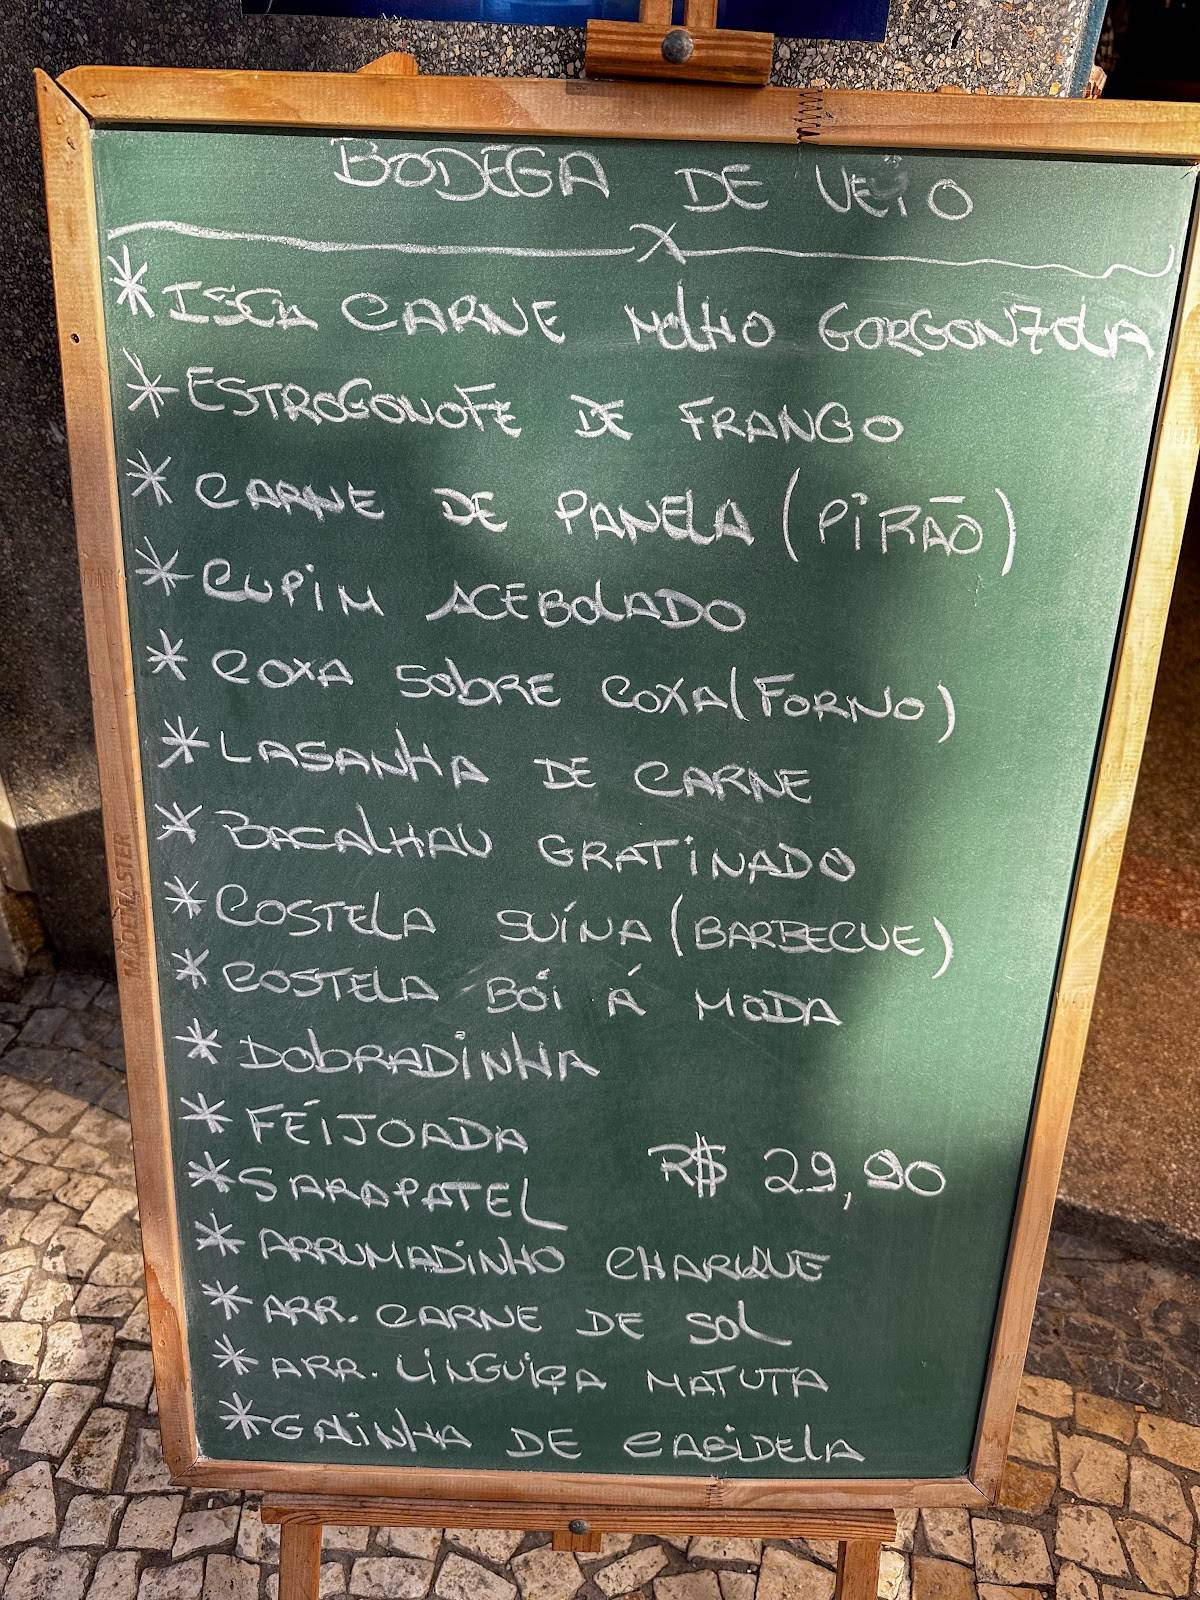 BODEGA DE VEIO
* ISCA CARNE MOLHO GORGONZOLA
* ESTROGONOFE DE FRANGO
* CARNE DE PANELA (PIRÃO)
* CUPIM ACEBOLADO
* COXA SOBRE COXA (FORNO)
* LASANHA DE CARNE
* BACALHAU GRATINADO
* COSTELA SUÍNA (BARBECUE)
* COSTELA BOI Á MODA
* DOBRADINHA
* FEIJOADA
R$ 29,90
* SARAPATEL
* ARRUMADINHO CHARQUE
* ARR. CARNE DE SOL
* ARR. LINGUIÇA MATUTA
* GALINHA DE CABIDELA
MADEMASTER